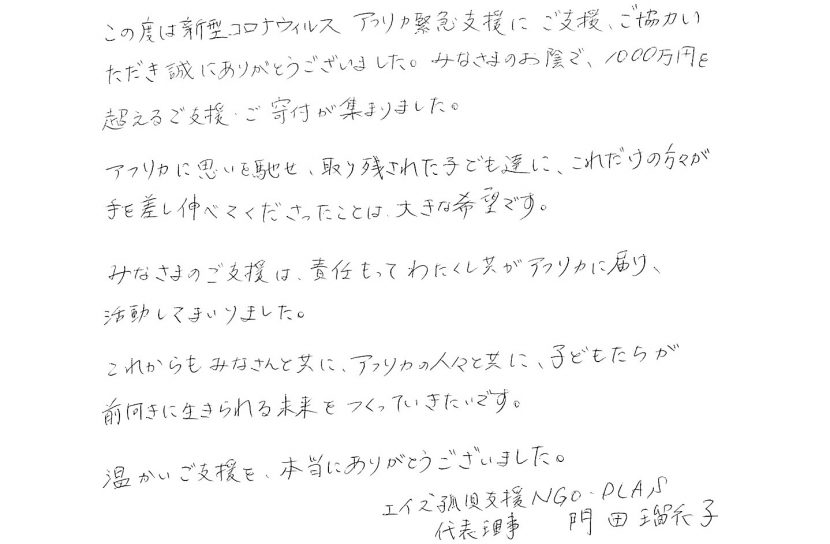 この度は新型コロナウィルス アフリカ緊急支援に ご支援、ご協力い
ただき誠にありがとうございました。みなさまのお陰で、1000万円を
超えるご支援・ご寄付が集まりました。
アフリカに思いを馳せ、取り残された子ども達に、これだけの方々が
手を差し伸べてくださったことは、大きな希望です。
みなさまのご支援は、責任もって わたくし共がアフリカに届け、
活動してまいりました。
これからも みなさんと共に、アフリカの人々と共に、子どもたちが
前向きに生きられる未来を つくっていきたいです。
温かいご支援を、本当にありがとうございました。
エイズ孤児支援NGO・PLAS
代表理事 門田瑠衣子